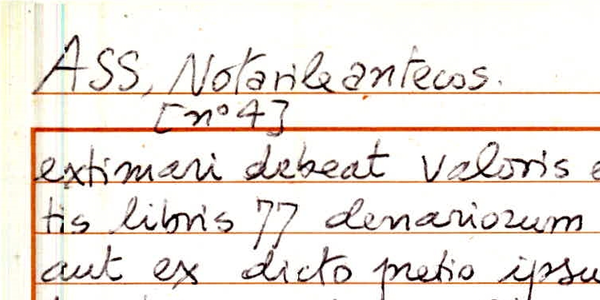 ASS, Notarile antecos.
[n° 4]
extimari debeat valoris e
tis libris 77 denariorum
aut ex dicto pretio ipsu